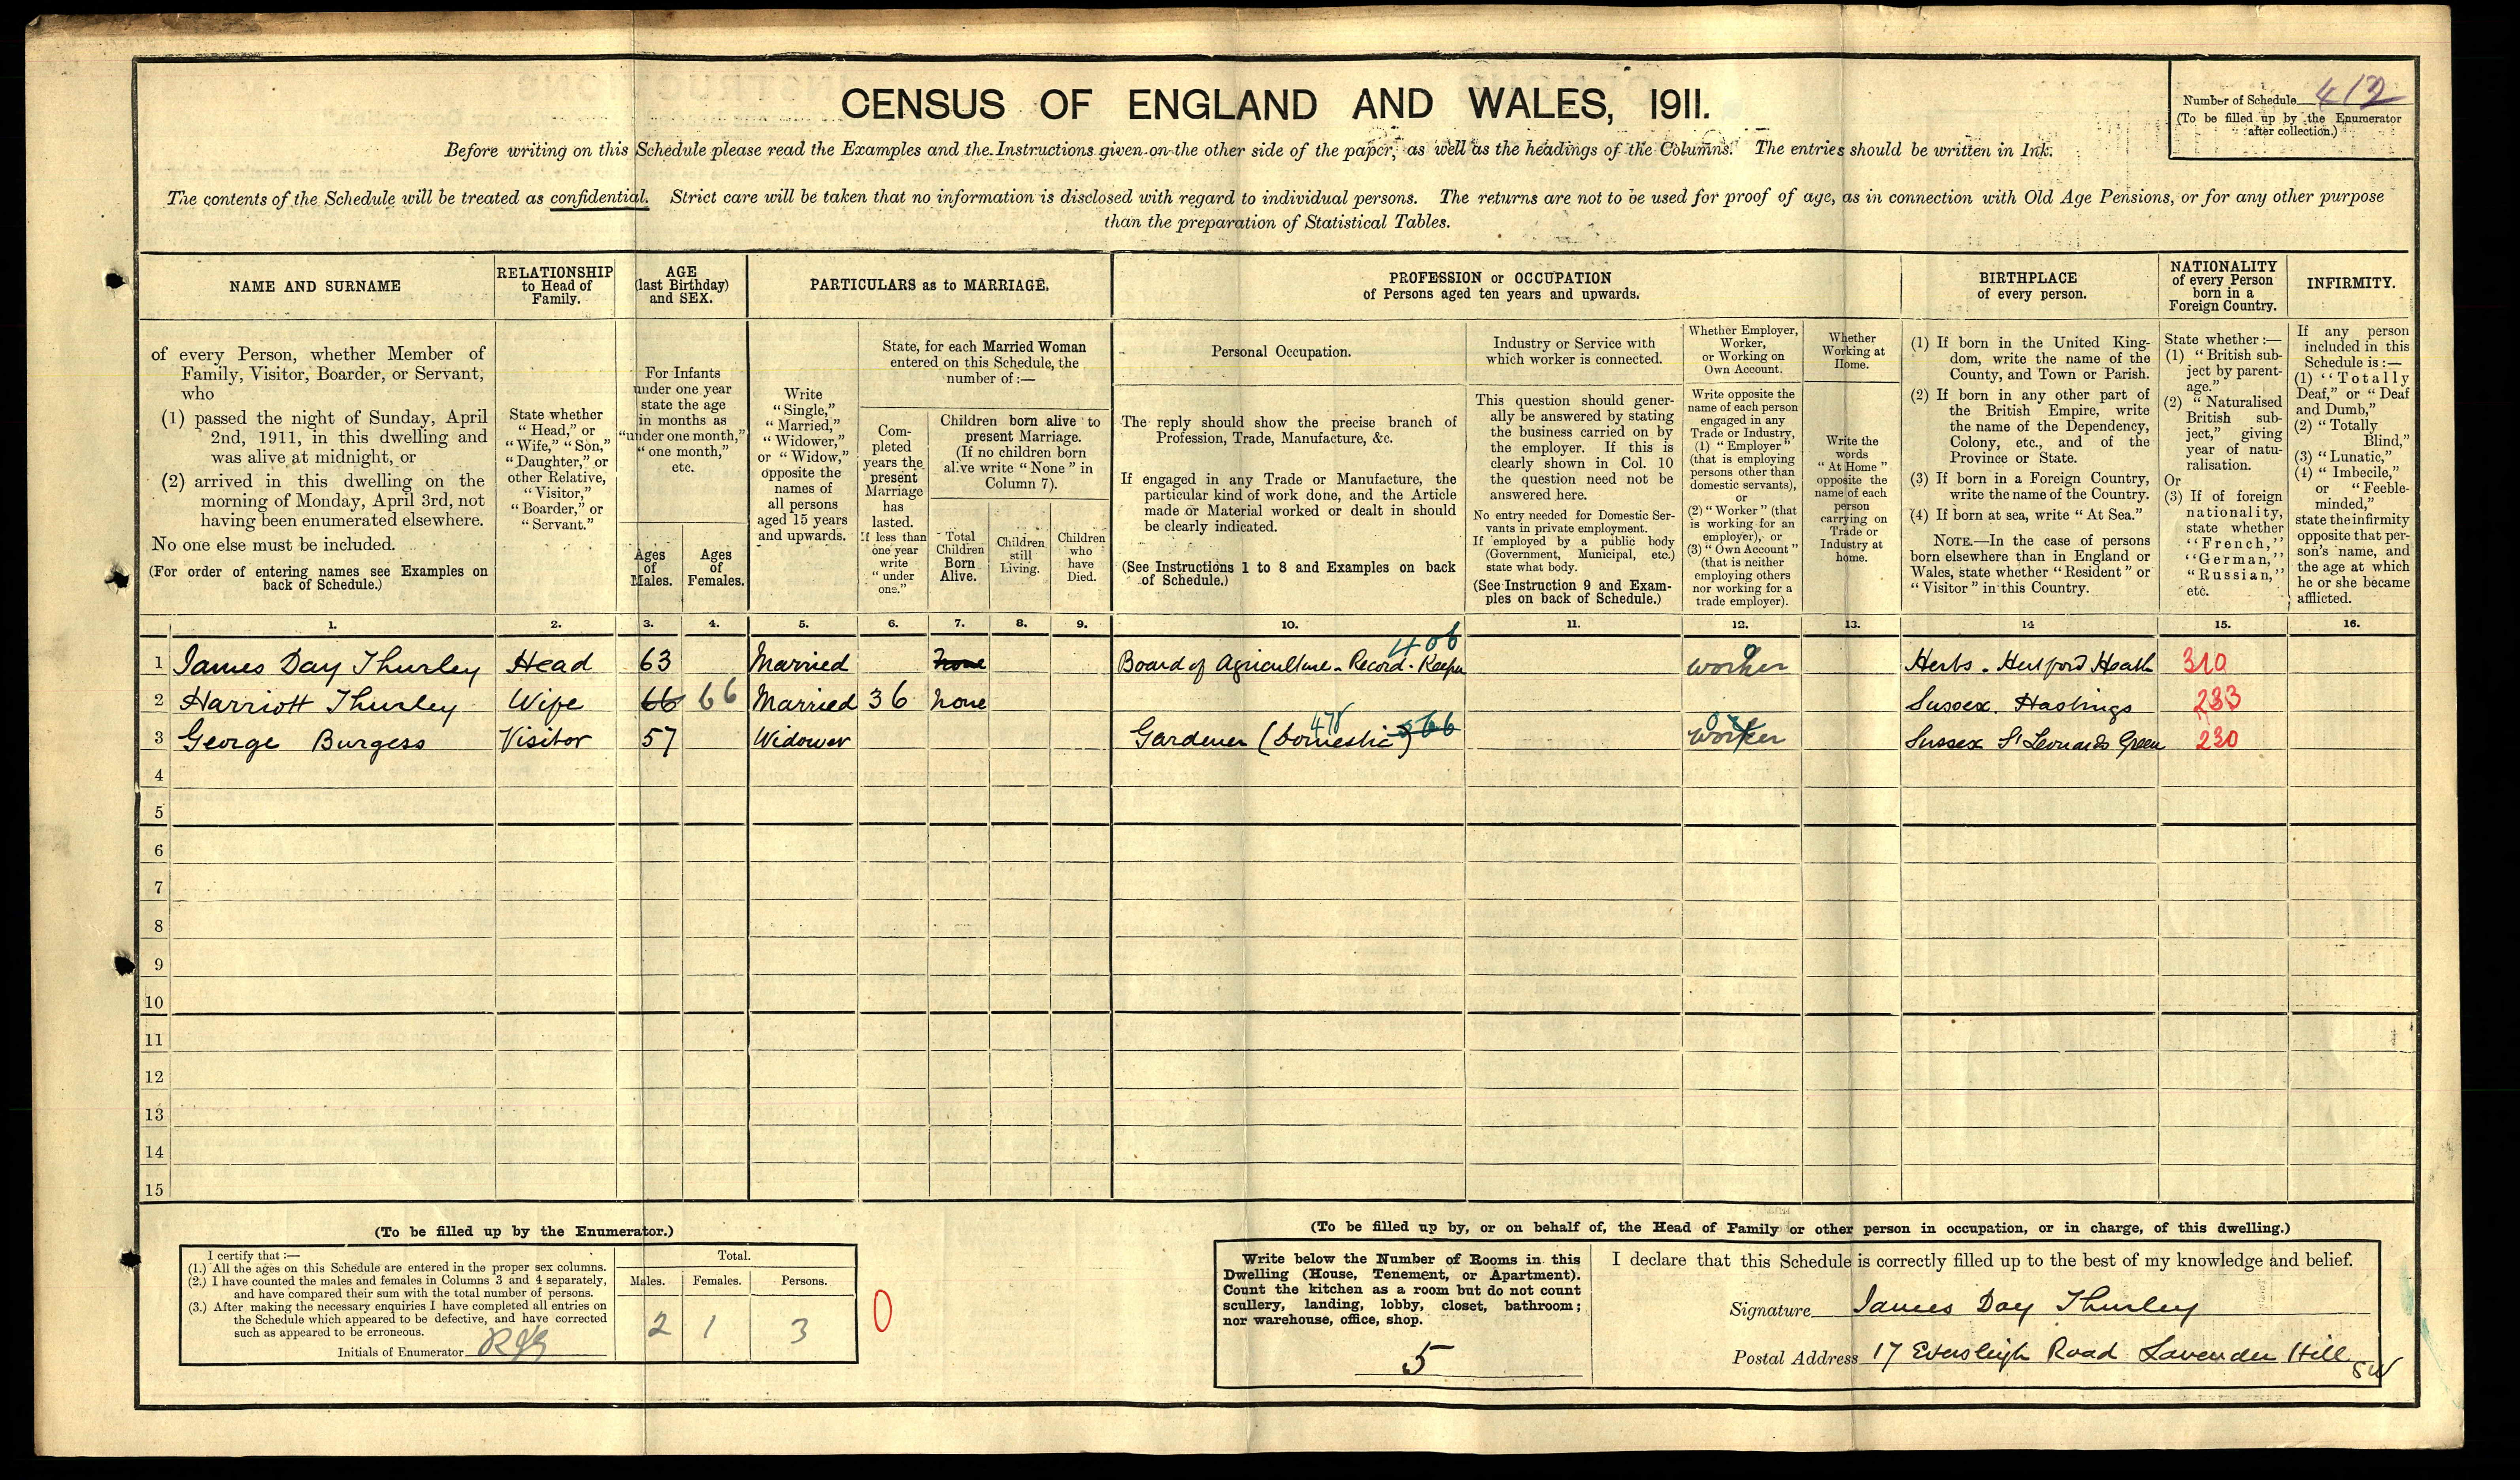 CENSUS OF ENGLAND AND WALES, 1911.
Number of Schedule 412
(To be filled up by the Enumerator
after collection.)
Before writing on this Schedule please read the Examples and the Instructions given on the other side of the paper, as well as the headings of the Columns. The entries should be written in Ink.
The contents of the Schedule will be treated as confidential. Strict care will be taken that no information is disclosed with regard to individual persons. The returns are not to be used for proof of age, as in connection with Old Age Pensions, or for any other purpose
than the preparation of Statistical Tables.
NAME AND SURNAME
of every Person, whether Member of
Family, Visitor, Boarder, or Servant,
who
(1) passed the night of Sunday, April
2nd, 1911, in this dwelling and
was alive at midnight, or
(2) arrived in this dwelling on the
morning of Monday, April 3rd, not
having been enumerated elsewhere.
No one else must be included.
(For order of entering names see Examples on
back of Schedule.)
RELATIONSHIP
to Head of
Family.
State whether
"Head," or
"Wife," "Son,"
"Daughter," or
other Relative,
"Visitor,"
"Boarder," or
"Servant."
AGE
(last Birthday)
and SEX.
For Infants
under one year
state the age
in months as
"under one month,"
"one month,"
etc.
Ages
of
Males.
Ages
of
Females.
PARTICULARS as to MARRIAGE.
Write
"Single,"
"Married,"
"Widower,"
or "Widow,"
opposite the
names of
all persons
aged 15 years
and upwards.
State, for each Married Woman
entered on this Schedule, the
number of:—
Com-
pleted
years the
present
Marriage
has
lasted.
If less than
one year
write
"under
one."
Children born alive to
present Marriage.
(If no children born
alive write "None" in
Column 7).
Total
Children
Born
Alive.
Children
still
Living.
Children
who
have
Died.
PROFESSION or OCCUPATION
of Persons aged ten years and upwards.
Personal Occupation.
The reply should show the precise branch of
Profession, Trade, Manufacture, &c.
If engaged in any Trade or Manufacture, the
particular kind of work done, and the Article
made or Material worked or dealt in should
be clearly indicated.
(See Instructions 1 to 8 and Examples on back
of Schedule.)
Industry or Service with
which worker is connected.
This question should gener-
ally be answered by stating
the business carried on by
the employer. If this is
clearly shown in Col. 10
the question need not be
answered here.
No entry needed for Domestic Ser-
vants in private employment.
If employed by a public body
(Government, Municipal, etc.)
state what body.
(See Instruction 9 and Exam-
ples on back of Schedule.)
Whether Employer,
Worker,
or Working on
Own Account.
Write opposite the
name of each person
engaged in any
Trade or Industry,
(1) "Employer"
(that is employing
persons other than
domestic servants),
or
(2) "Worker" (that
is working for an
employer), or
(3) "Own Account"
(that is neither
employing others
nor working for a
trade employer).
Whether
Working at
Home.
Write the
words
"At Home"
opposite the
name of each
person
carrying on
Trade or
Industry at
home.
BIRTHPLACE
of every person.
(1) If born in the United King-
dom, write the name of the
County, and Town or Parish.
(2) If born in any other part of
the British Empire, write
the name of the Dependency,
Colony, etc., and of the
Province or State.
(3) If born in a Foreign Country,
write the name of the Country.
(4) If born at sea, write "At Sea."
NOTE.—In the case of persons
born elsewhere than in England or
Wales, state whether "Resident" or
"Visitor" in this Country.
NATIONALITY
of every Person
born in a
Foreign Country.
State whether:—
(1) "British sub-
ject by parent-
age."
(2) "Naturalised
British sub-
ject," giving
year of natu-
ralisation.
Or
(3) If of foreign
nationality,
state whether
"French,"
"German,"
"Russian,"
etc.
INFIRMITY.
If any person
included in this
Schedule is:—
(1) "Totally
Deaf," or "Deaf
and Dumb,"
(2) "Totally
Blind,"
(3) "Lunatic,"
(4) "Imbecile,"
or "Feeble-
minded,"
state the infirmity
opposite that per-
son's name, and
the age at which
he or she became
afflicted.
1. 2. 3. 4. 5. 6. 7. 8. 9. 10. 11. 12. 13. 14 15. 16.
406 0
1 James Day Thurley Head 63 Married None Board of Agriculture - Record - Keeper Worker Herts. Hertford Heath 310
2 Harriott Thurley Wife 66 66 Married 36 None Sussex. Hastings 233
478 566
3 George Burgess Visitor 57 Widower Gardener (Domestic) Worker Sussex St Leonards Green 230
4
5
6
7
8
9
10
11
12
13
14
15
(To be filled up by the Enumerator.)
I certify that:—
(1.) All the ages on this Schedule are entered in the proper sex columns.
(2.) I have counted the males and females in Columns 3 and 4 separately,
and have compared their sum with the total number of persons.
(3.) After making the necessary enquiries I have completed all entries on
the Schedule which appeared to be defective, and have corrected
such as appeared to be erroneous.
Initials of Enumerator
Total.
Males. Females. Persons.
2 1 3
0
(To be filled up by, or on behalf of, the Head of Family or other person in occupation, or in charge, of this dwelling.)
Write below the Number of Rooms in this
Dwelling (House, Tenement, or Apartment).
Count the kitchen as a room but do not count
scullery, landing, lobby, closet, bathroom;
nor warehouse, office, shop.
5
I declare that this Schedule is correctly filled up to the best of my knowledge and belief.
Signature James Day Thurley
Postal Address 17 Eversleigh Road Lavender Hill
SW